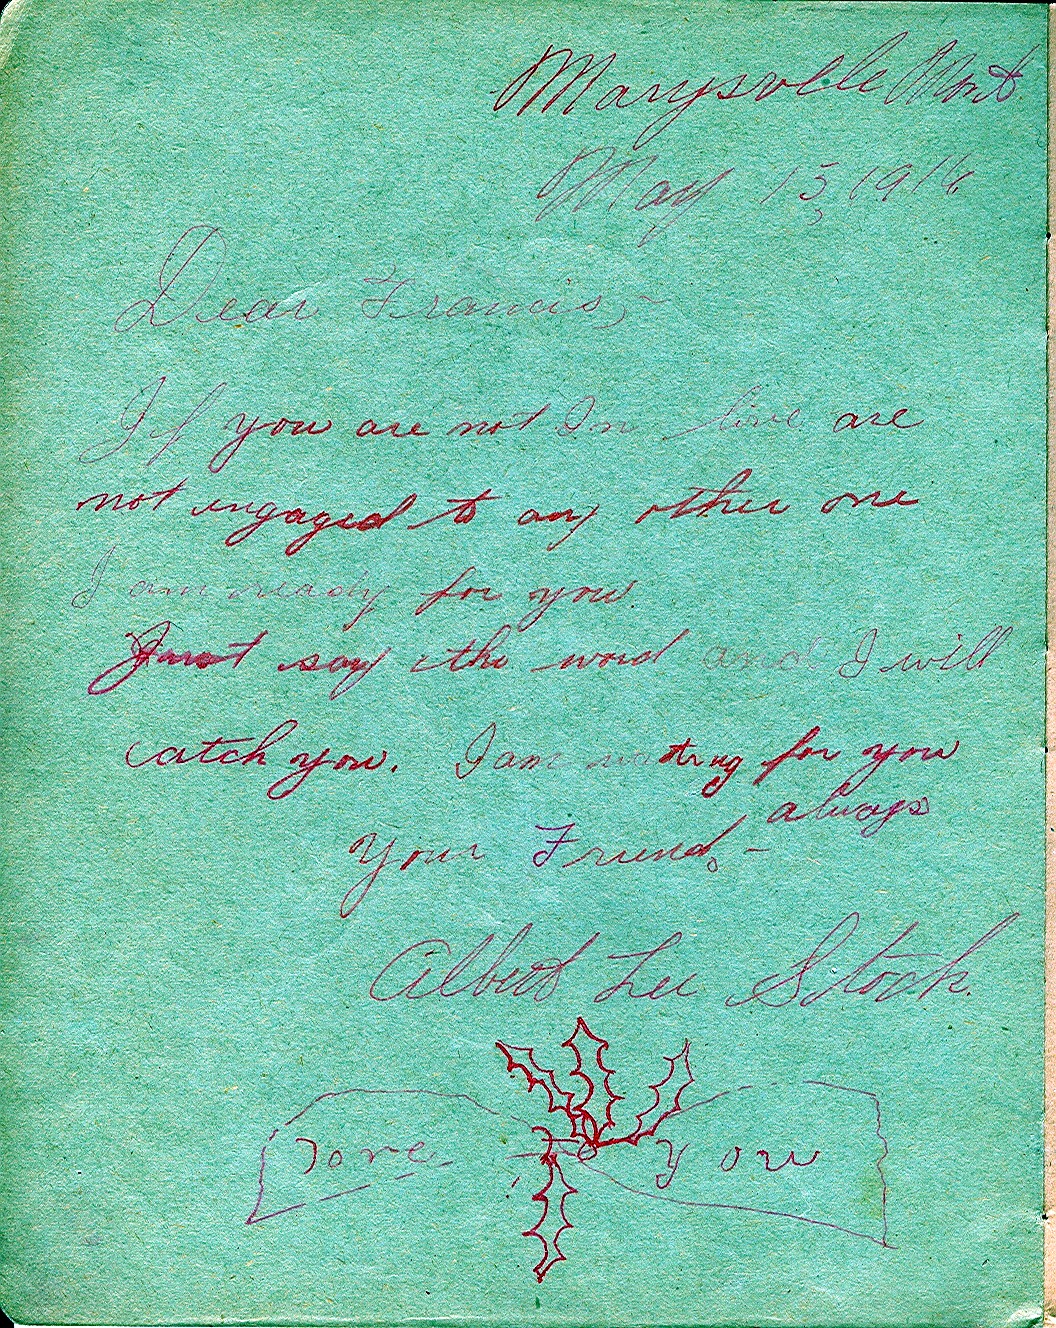 Marysville Mont
May 15, 1916
Dear Francis,-
If you are not In love are
not engaged to any other one
I am ready for you.
Just say the word and I will
catch you. I am wating for you
always
Your Friend.-
Albert Lee Stock.
Love you